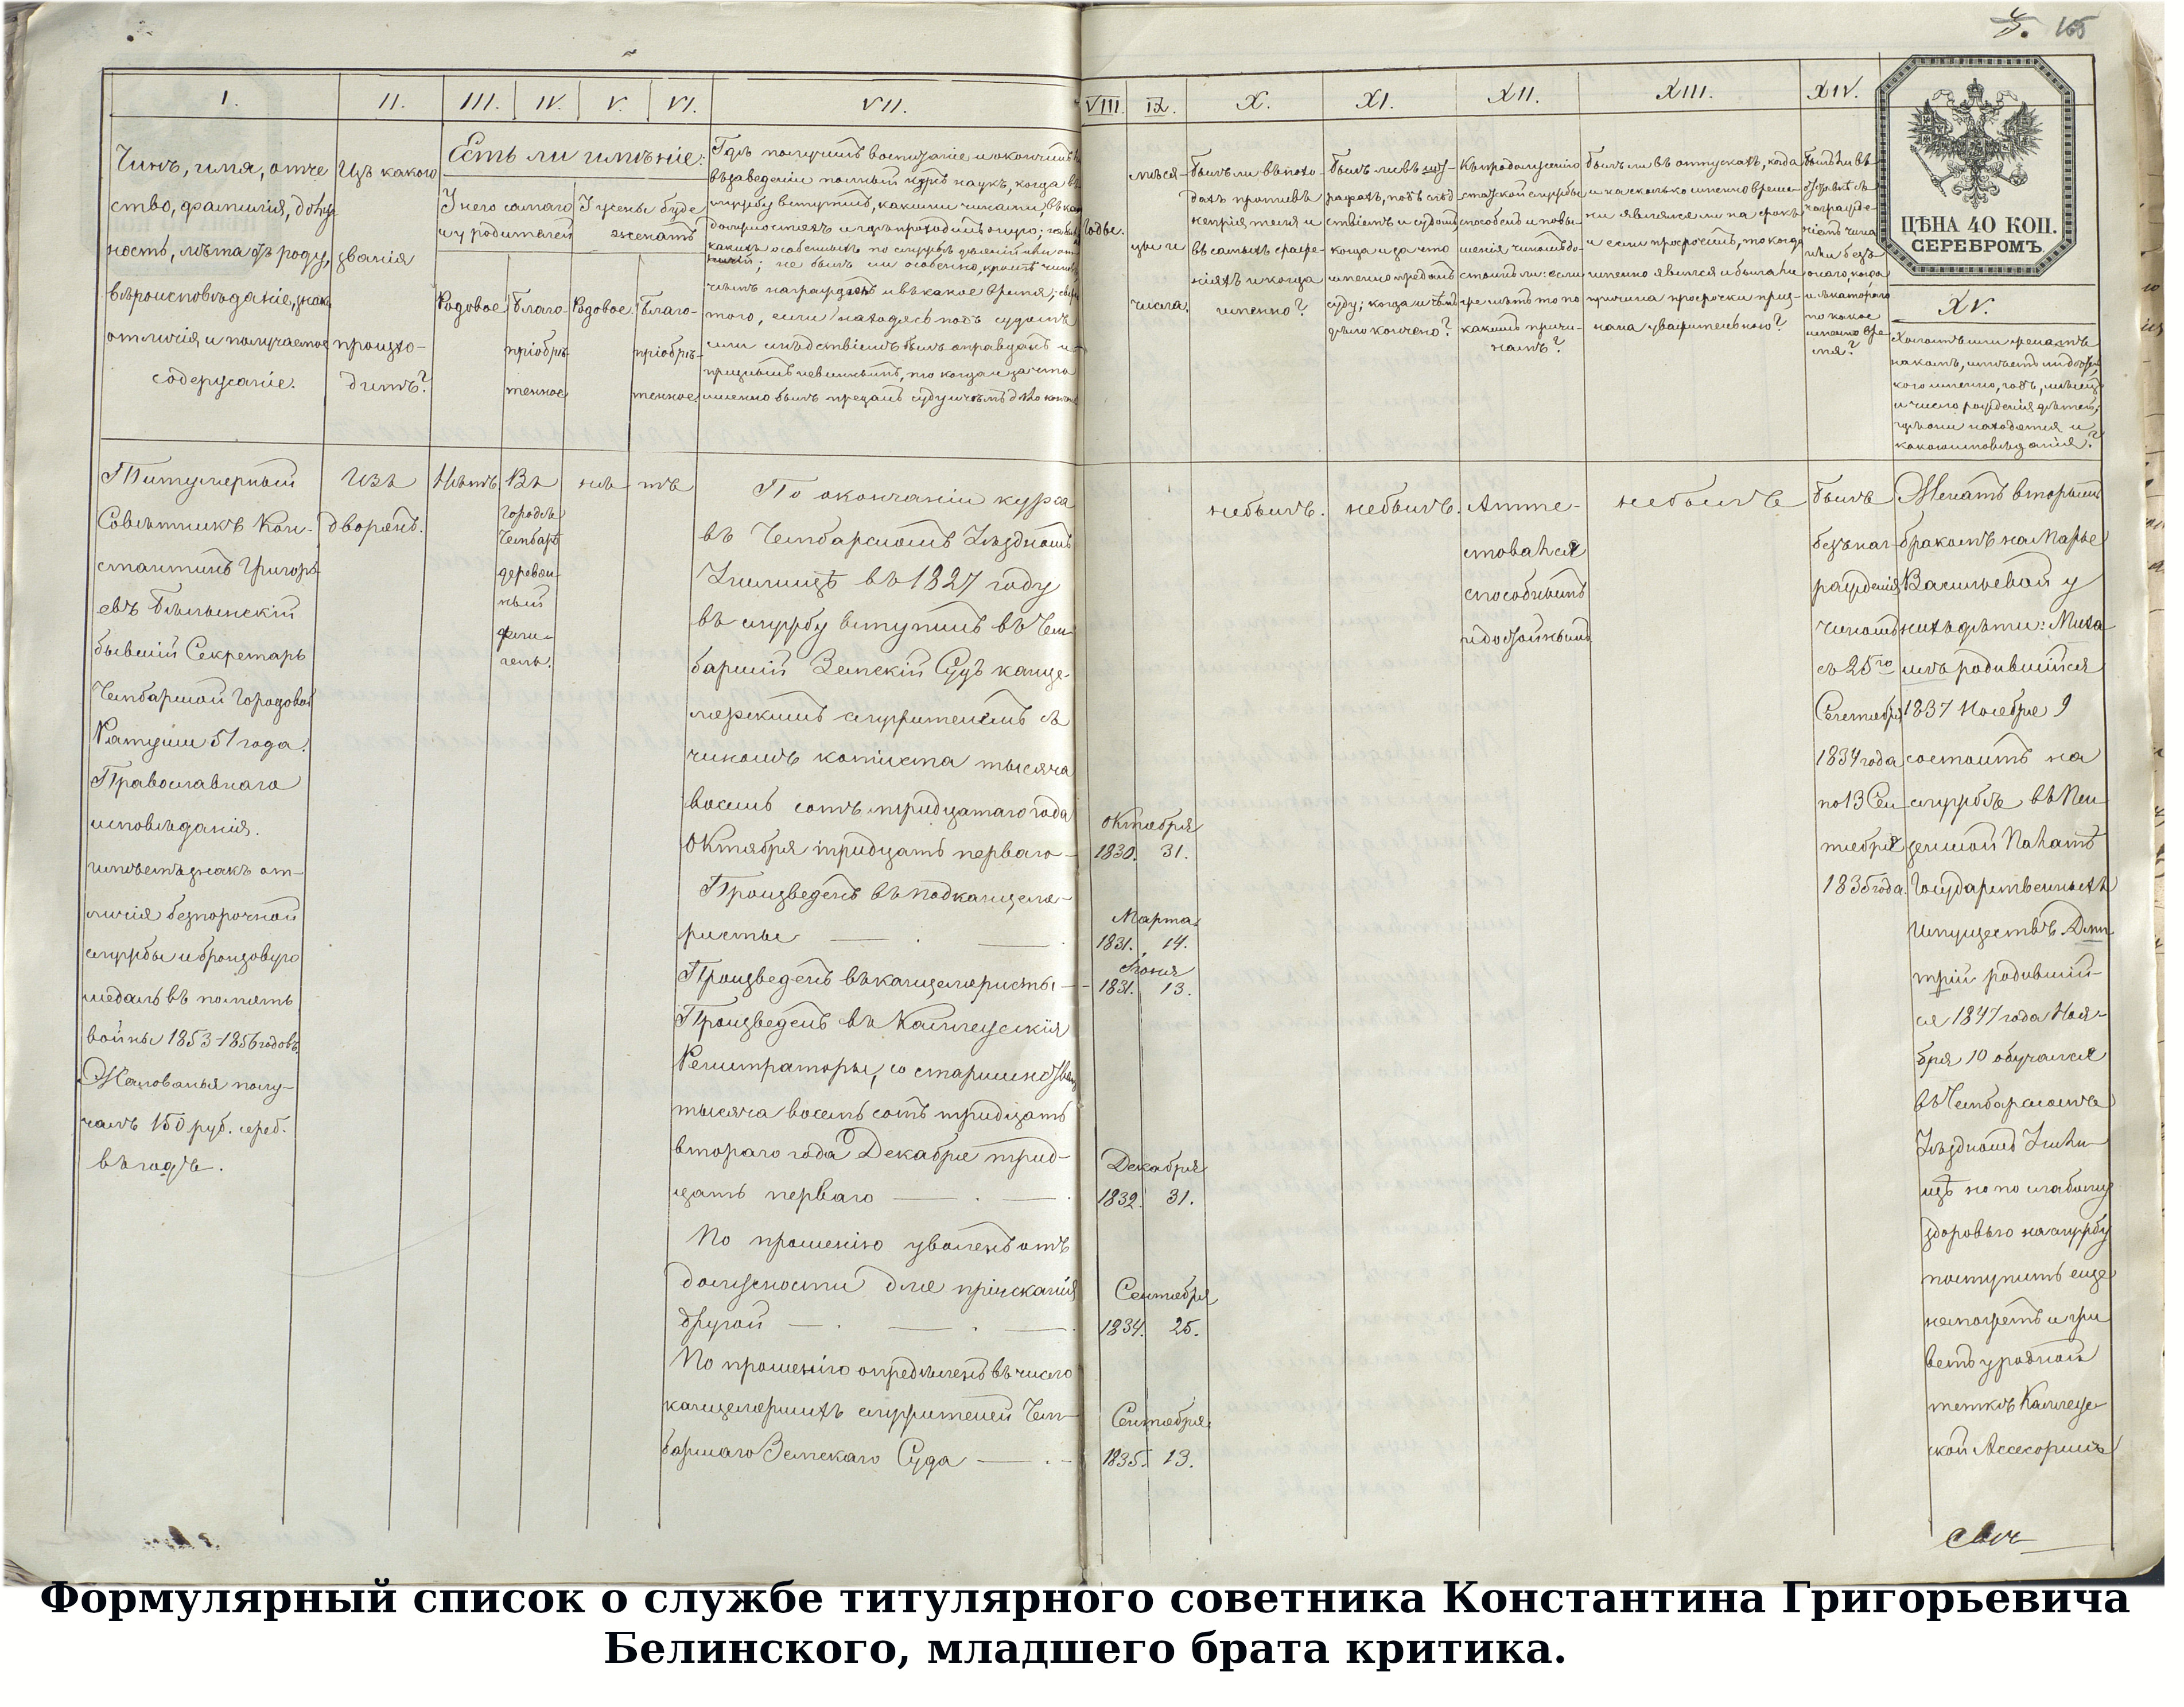 165
I.
II.
III.
IV.
V.
VI.
VII.
VIII.
IX.
X.
XI.
XII.
XIII.
XIV.
ЦѢНА 40 КОП.
СЕРЕБРОМЪ.
XV.
Чинъ, имя, отче
ство, фамилія, долж
ность, лѣта отъ роду,
вѣроисповѣданіе, знаки
отличія и получаемое
содержаніе.
Изъ какого
званія
происхо-
дитъ?
Есть ли имѣніе:
У него самаго
и у родителей
У жены буде
женатъ
Родовое
Благо-
пріобрѣ-
тенное
Родовое
Благо-
пріобрѣ-
тенное
Гдѣ получилъ воспитаніе и окончилъ
въ заведеніи полный курсъ наукъ, когда въ
службу вступилъ, какими чинами, въ как
должностяхъ и гдѣ проходилъ оную;
какихъ особенныхъ по службѣ дѣяній или от
личій; не былъ ли особенно, кромѣ чиновъ,
чѣмъ награжденъ и въ какое время; сверхъ
того, если находясь подъ судомъ
или слѣдствіемъ былъ оправданъ и
признанъ невиннымъ, то когда и за что
именно былъ преданъ суду и чѣмъ дѣло конч
Годы.
мѣся-
цы и
числа.
Былъ ли въ похо-
дахъ противъ
непріятеля и
въ самыхъ сраже-
ніяхъ и когда
именно?
Былъ ли въ штр-
рафахъ, подъ слѣд
ствіемъ и судомъ
когда и за что
именно преданъ
суду; когда и чѣмъ
дѣло кончено?
Къ продолженію
статской службы
способенъ и повы-
шенія чиномъ до-
стоинъ ли: если
же нѣтъ то по
какимъ причи-
намъ?
Былъ ли въ отпускахъ, когда
и на сколько именно време-
ни являлся ли на срокъ
и если просрочилъ, то когда
именно явился и была ли
причина просрочки приз-
нана уважительною?
Былъ ли въ
отставкѣ съ
награжде-
ніемъ чина
или безъ
онаго, когда
и съ котораго
по какое
именно вре-
мя?
Холостъ или женатъ
на комъ, имѣетъ ли дѣтей,
кого именно, годъ, мѣсяцъ
и число рожденія дѣтей;
гдѣ они находятся и
какого исповѣданія?
Титулярный
Совѣтникъ Кон-
стантинъ Григорь
евъ Бѣлынскій
бывшій Секретарь
Чембарской Городовой
Ратуши 51 года.
Православнаго
исповѣданія.
имѣетъ знакъ от-
личія безпорочной
службы и бронзовую
медаль въ память
войны 1853-1856 годовъ.
Жалованья полу-
чалъ 150 руб. сереб.
въ годъ.
Изъ
дворянъ.
Нѣтъ
Въ
городѣ
Чембарѣ
деревян-
ный
флигель.
нѣ-
тъ
По окончаніи курса
въ Чембарскомъ Уѣздномъ
Училищѣ въ 1827 году
въ службу вступилъ въ Чем
барскій Земскій Судъ канце-
лярскимъ служителемъ съ
чиномъ копіиста тысяча
восемь сотъ тридцатаго года
Октября тридцать перваго —
Произведенъ въ подканцеля-
ристы — . —
Произведенъ въ канцеляристы —
Произведенъ въ Коллежскія
Регистраторы, со старшинствомъ
тысяча восемь сотъ тридцать
втораго года Декабря трид-
цать перваго — . — .
По прошенію уволенъ отъ
должности для пріисканія
другой — . — . — .
По прошенію опредѣленъ въ число
канцелярскихъ служителей Чем-
барскаго Земскаго Суда — . —
Октября
1830. 31.
Марта
1831. 14.
Іюня
1831. 13.
Декабря
1832. 31.
Сентября
1834. 25.
Сентября
1835. 13.
небылъ.
небылъ.
Атте-
стовался
способнымъ
и достойнымъ
небылъ
былъ
безъ наг-
ражденія
чиномъ
съ 25го
Сентября
1834 года
по 13 Сен
тября
1835 года.
Женатъ вторымъ
бракомъ на Марьѣ
Васильевой у
нихъ дѣти: Миха-
илъ родившійся
1837 Ноября 9
состоитъ на
службѣ въ Пен
зенской Палатѣ
Государственныхъ
Имуществъ Дми
трій родивший-
ся 1847 года Ноя-
бря 10 обучался
въ Чембарскомъ
Уѣздномъ Учили-
щѣ но по слабому
здоровью на службу
поступить еще
не можетъ и жи
ветъ у родной
тетки Коллеж-
ской Ассесорши
Формулярный список о службе титулярного советника Константина Григорьевича
Белинского, младшего брата критика.